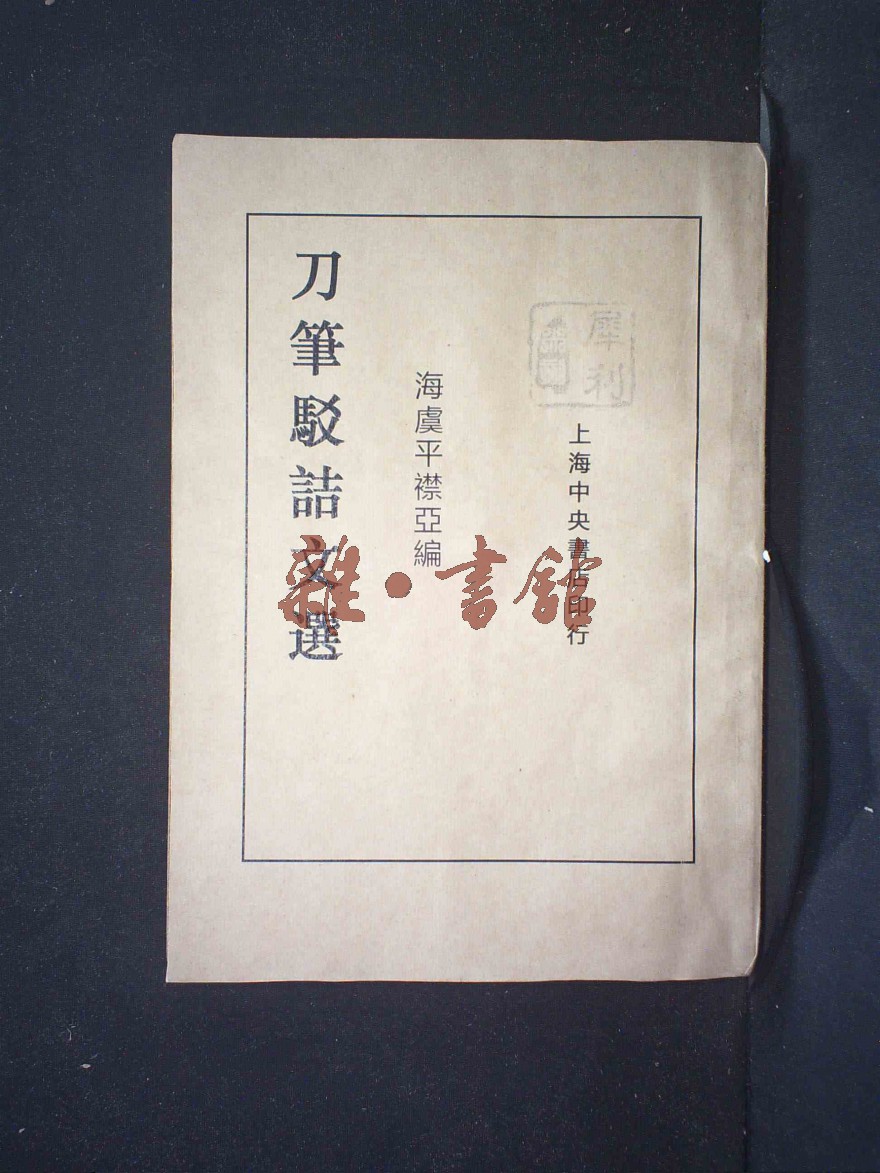 犀利
上海中央書店印行
海虞平襟亞編
刀筆駁詰文選
雜·書館